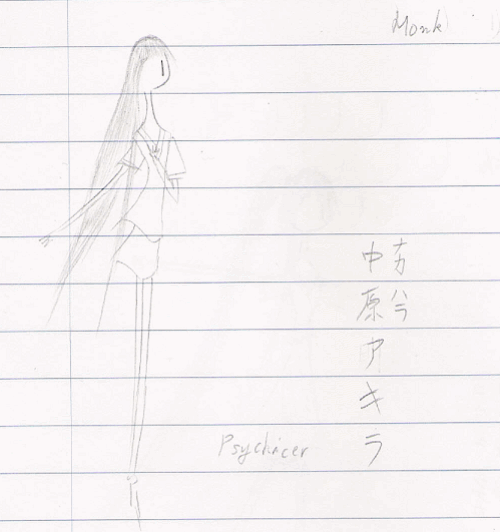 Monk
中原アキラ
Psychicer